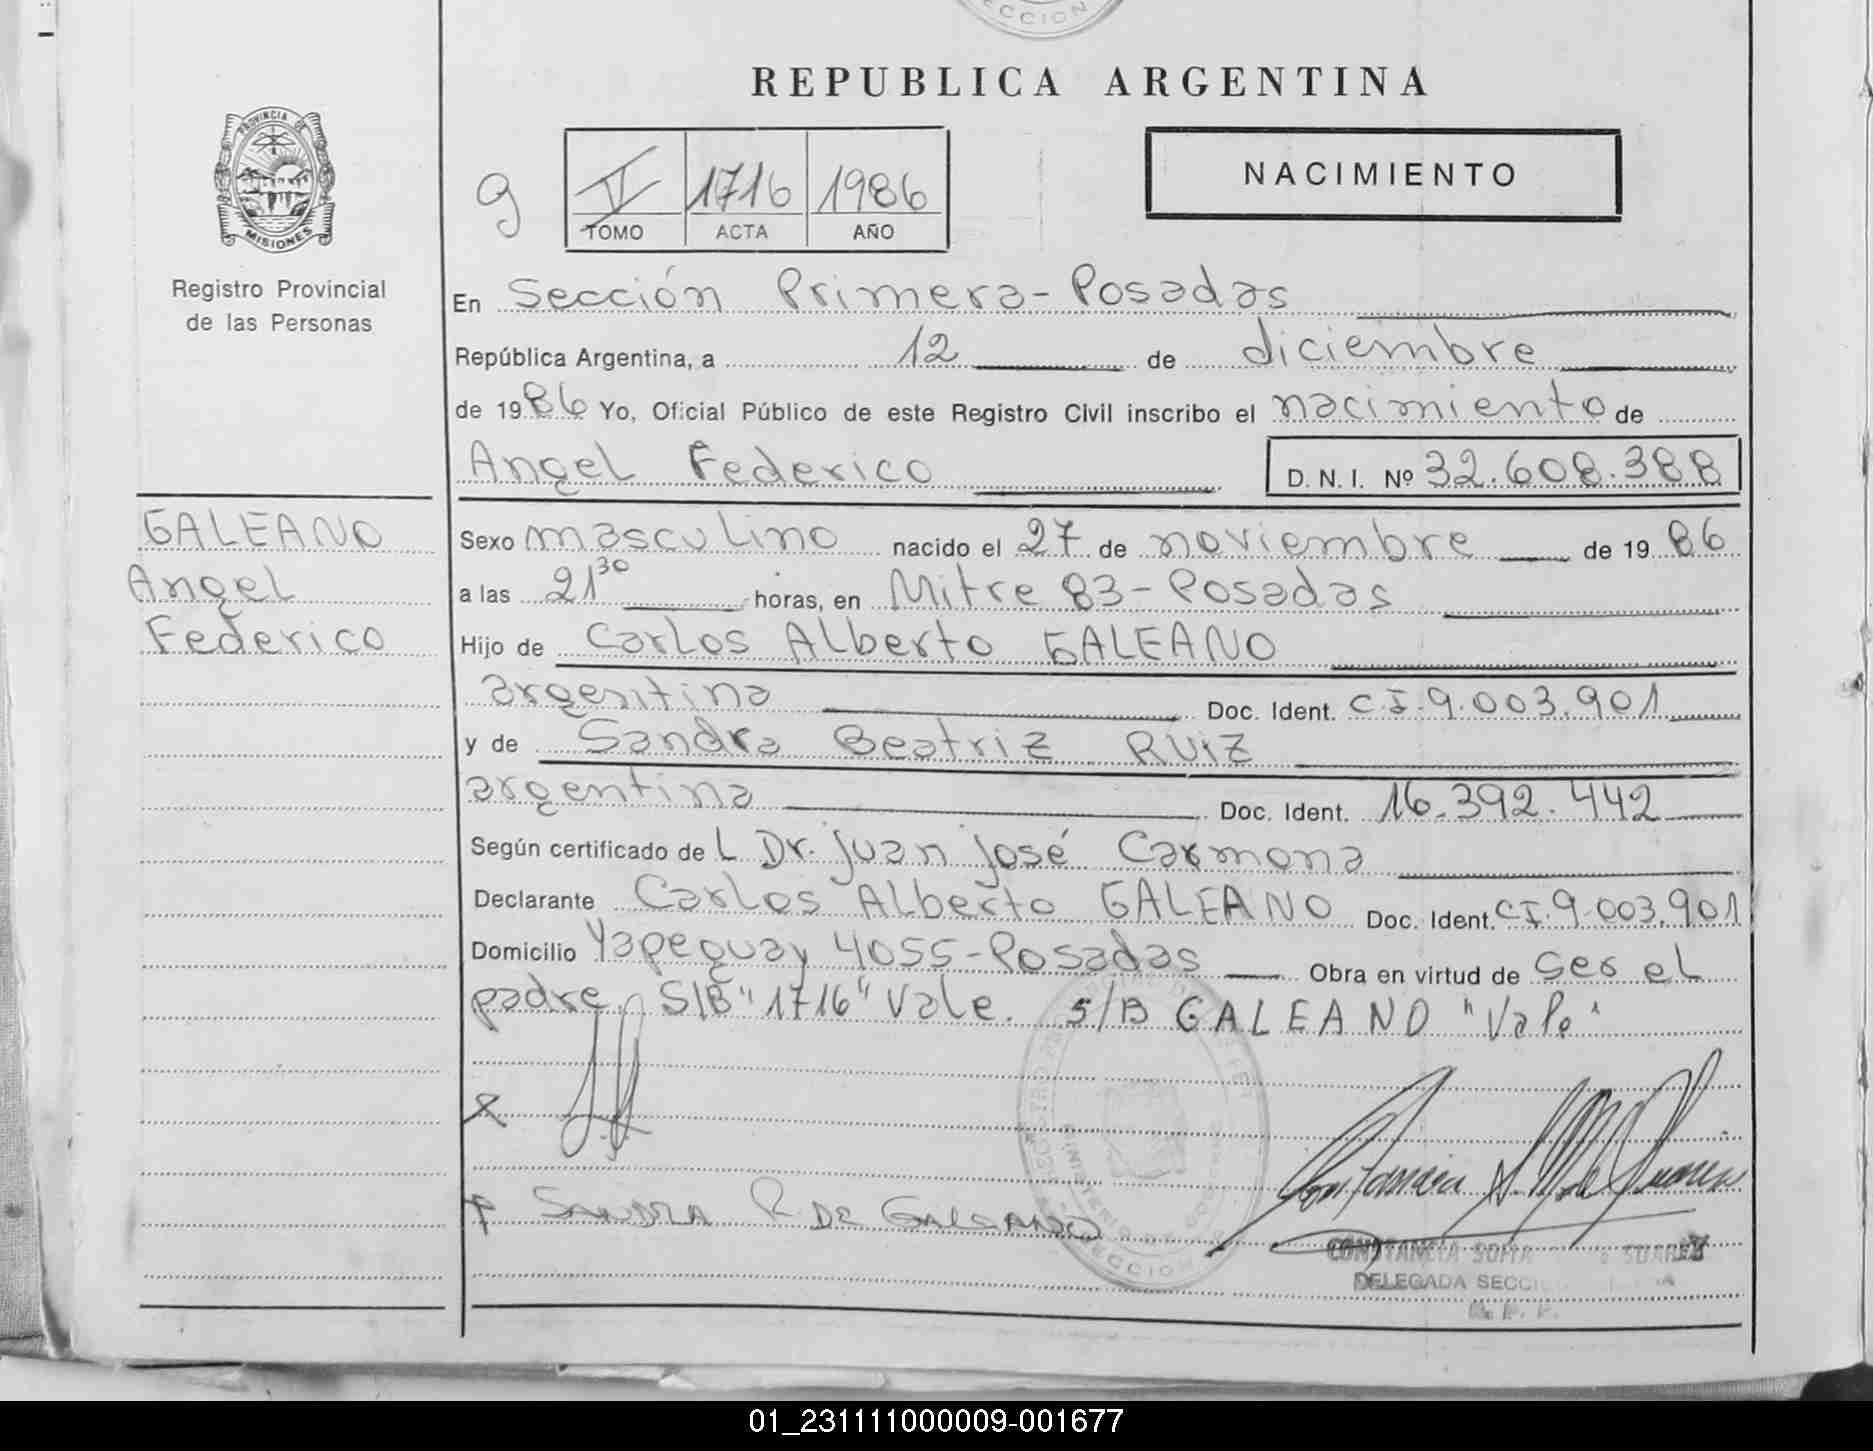 REPUBLICA ARGENTINA
PROVINCIA DE
MISIONES
Registro Provincial
de las Personas
9
1716 1986
TOMO ACTA AÑO
NACIMIENTO
En Sección Primera - Posadas
República Argentina, a 12 de diciembre
de 1986 Yo, Oficial Público de este Registro Civil inscribo el nacimiento de
Angel Federico D. N. I. Nº 32.608.388
GALEANO
Angel
Federico
Sexo masculino nacido el 27 de noviembre de 1986
a las 21 30 horas, en Mitre 83 - Posadas
Hijo de Carlos Alberto GALEANO
argentina Doc. Ident. C.I. 9.003.901
y de Sandra Beatriz RUIZ
argentina Doc. Ident. 16.392.442
Según certificado de L Dr. Juan José Carmona
Declarante Carlos Alberto GALEANO Doc. Ident. C.I. 9.003.901
Domicilio Yapeguay 4055 - Posadas Obra en virtud de ser el
padre. S/B "1716" Vale. S/B GALEANO "Vale"
SANDRA R. DE GALEANO
CONSTANCIA SOFIA SUAREZ
DELEGADA
R. P. P.
01_231111000009-001677